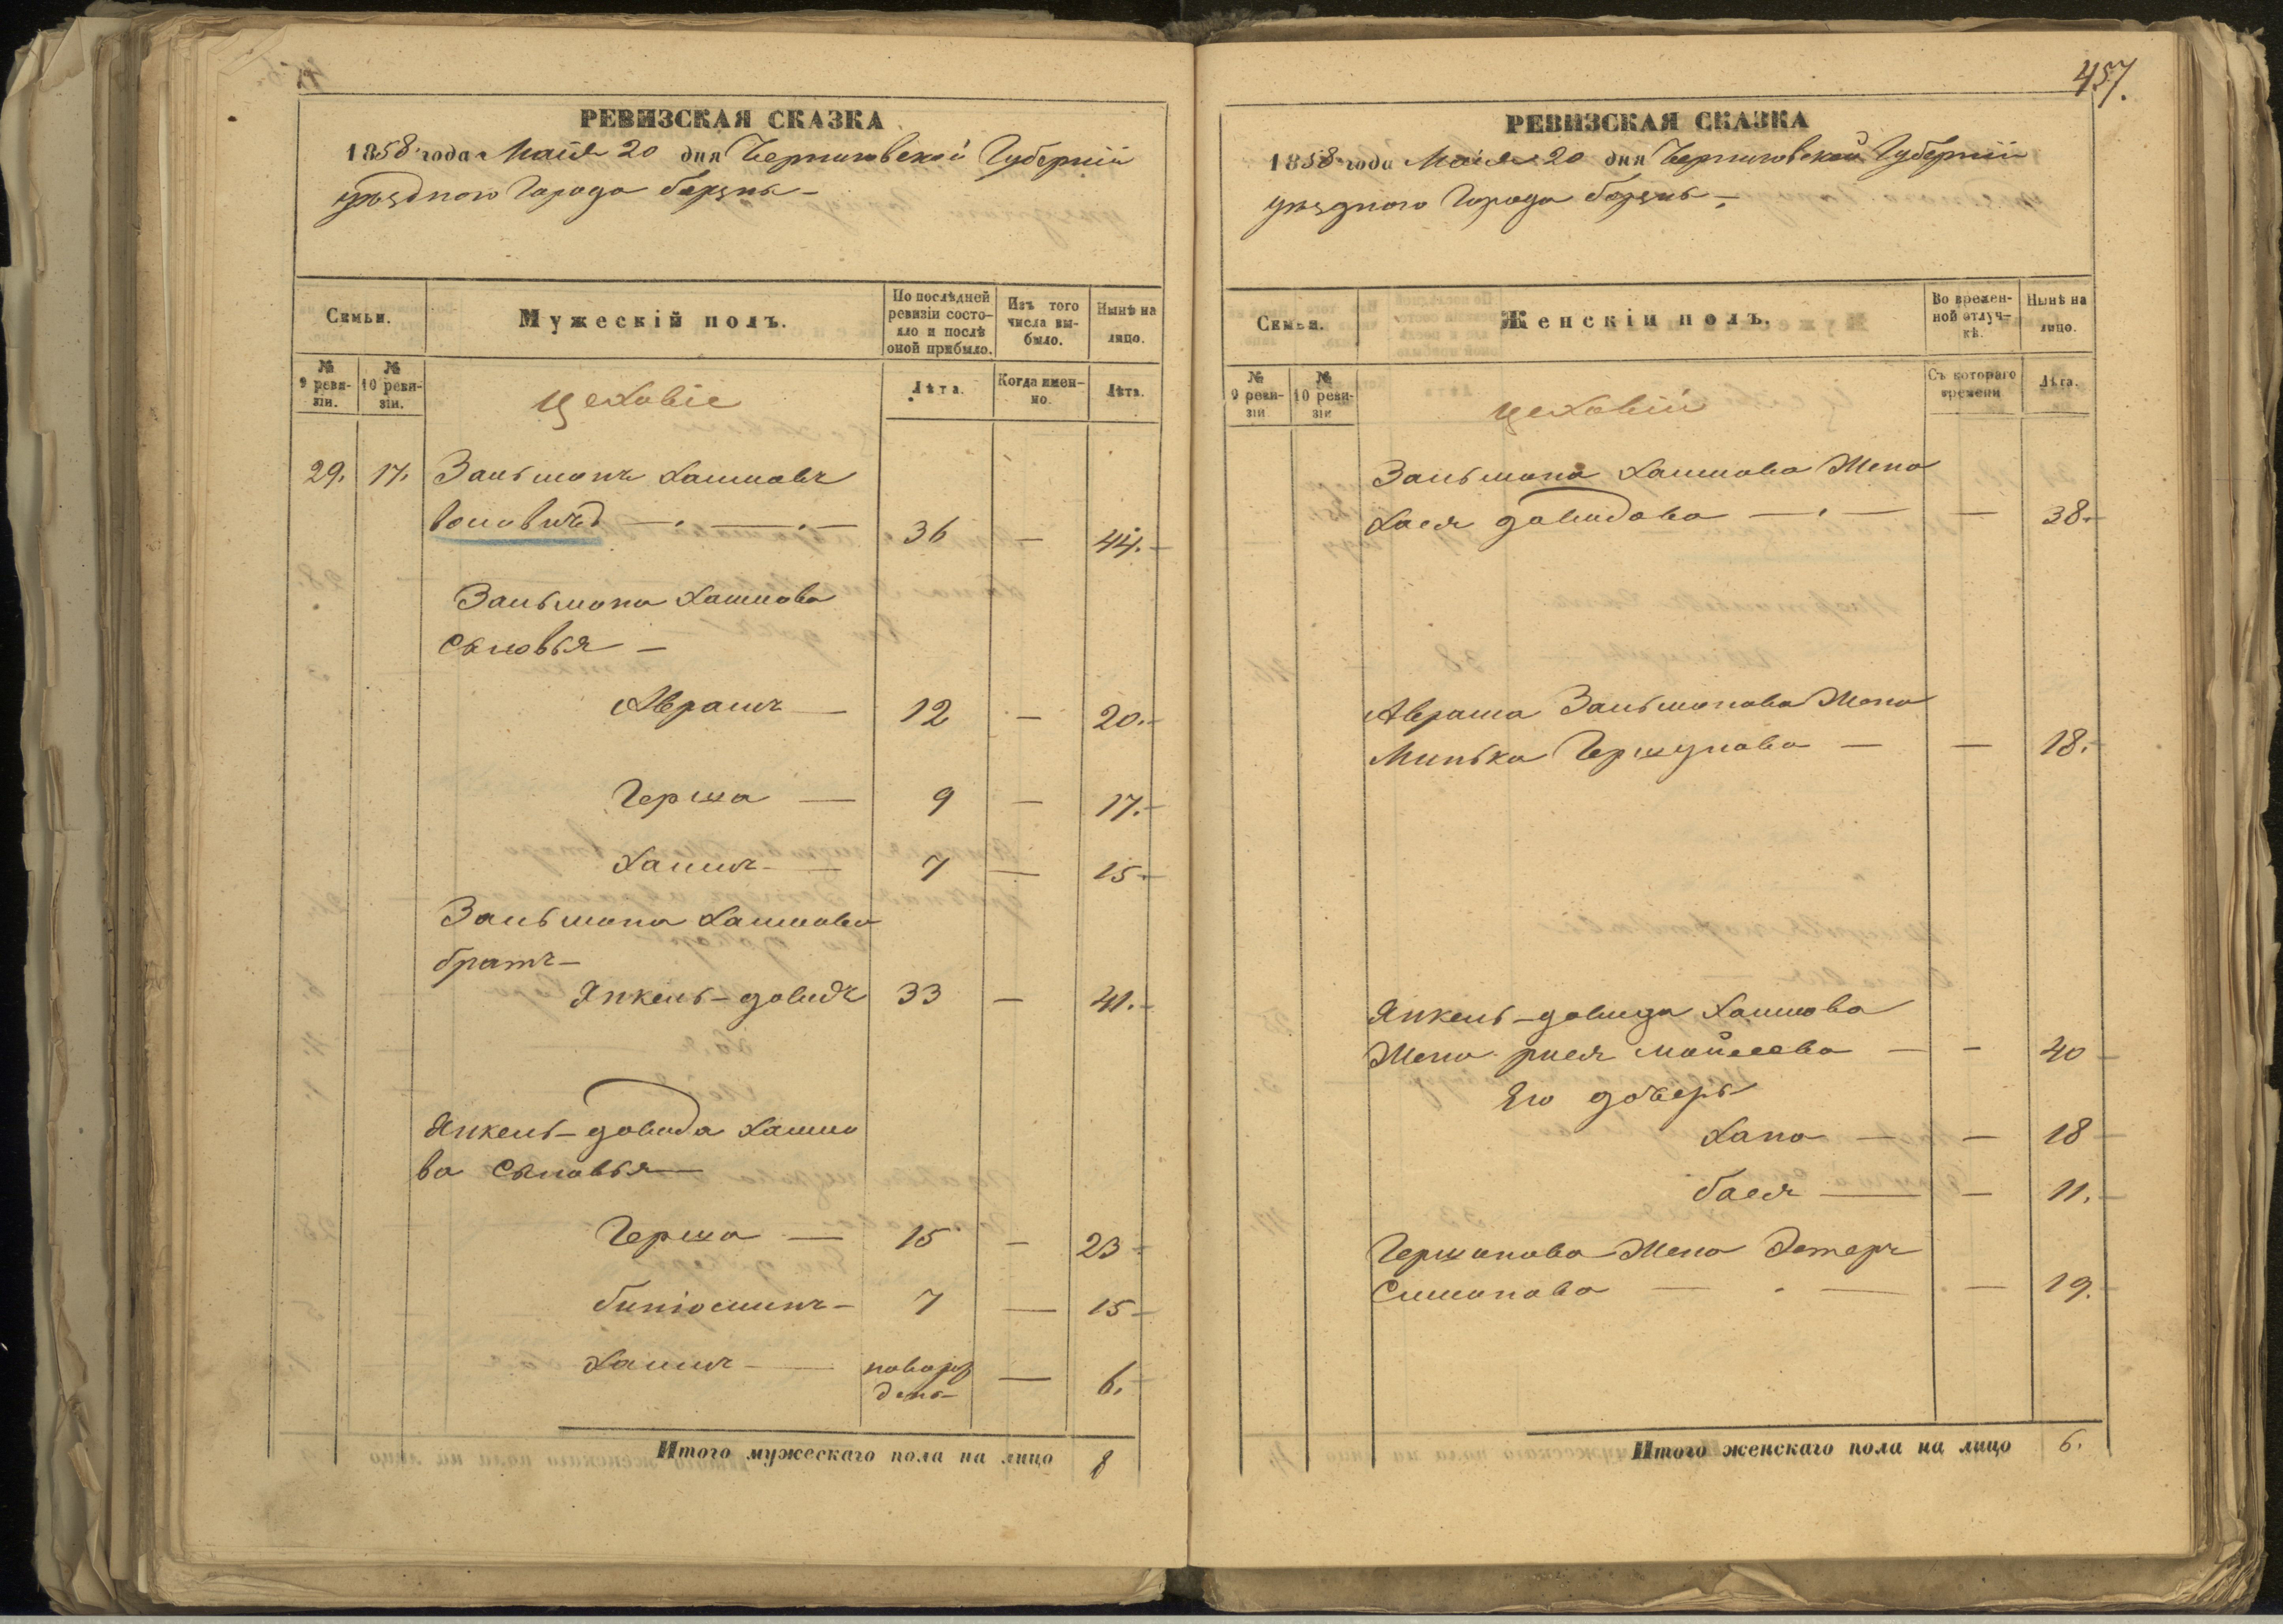 РЕВИЗСКАЯ СКАЗКА
1858 года Маія 20 дня Черниговской Губерніи
уѣзднаго Города Борзны
Семьи.
Мужескій полъ.
По послѣдней ревизіи состояло и послѣ оной прибыло.
Изъ того числа выбыло.
Нынѣ на лицо.
№ 9 ревизіи.
№ 10 ревизіи.
цеховіе
Лѣта.
Когда именно.
Лѣта.
29. 17. Зальманъ Хаимовъ
36 — 44.
Зальмана Хаимова
Сыновья —
Аврамъ — 12 — 20.
Герша — 9 — 17.
Хаимъ — 7 — 15
Зальмана Хаимова
братъ —
Янкель-довидъ 33 — 41.
Янкель-довида Хаимо
ва Сыновья
Герша — 15 — 23
биніоминъ — 7 — 15
Хаимъ — новорож — 6.
денъ
Итого мужескаго пола на лицо 8
457.
РЕВИЗСКАЯ СКАЗКА
1858 года Маія 20 дня Черниговской Губерніи
уѣзднаго Города Борзны
Семьи.
Женскій полъ.
Во временной отлучкѣ.
Нынѣ на лицо.
№ 9 ревизіи
№ 10 ревизіи
цеховіи
Съ котораго времени
Лѣта.
Зальмана Хаимова Жена
Хася довидова — — 38.
Аврама Зальманова Жена
Минька Гершунова — — 18.
Янкель-довида Хаимова
Жена рися мойсеева — — 40
Его дочерь
Хана — — 18
бася — — 11.
Гершонова Жена Эстеръ
Симонова — — 19.
Итого женскаго пола на лицо 6.